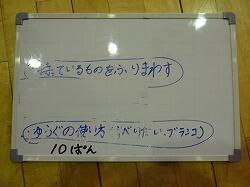 持っているものをふりまわす
ゆうぐの使い方(すべりだい、ブランコ)
10ぱん